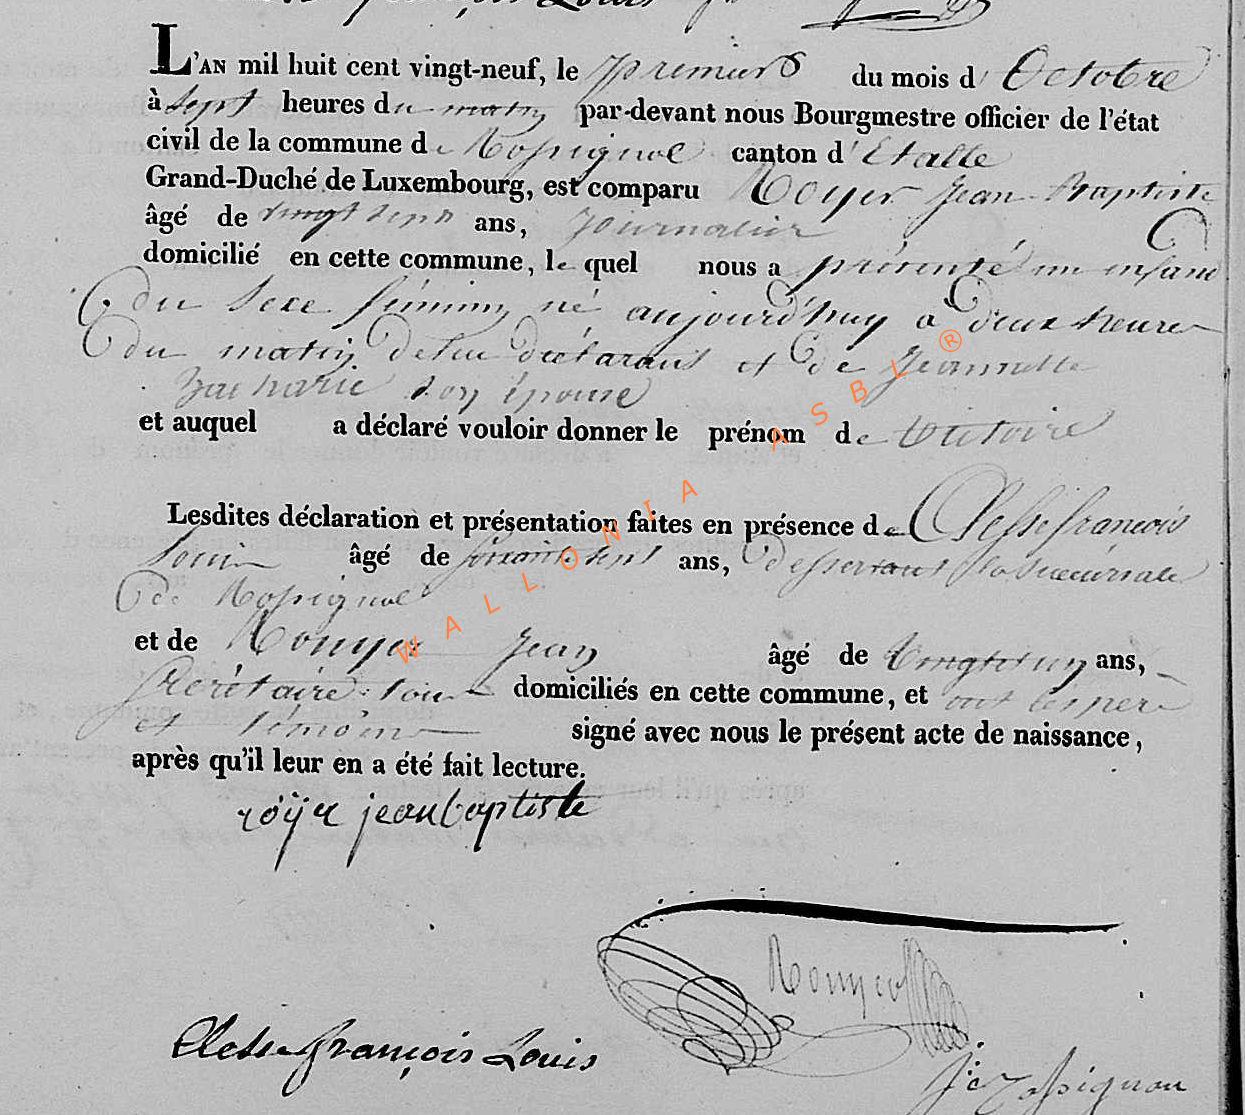 François Louis
L'AN mil huit cent vingt-neuf, le premier du mois d'Octobre
à sept heures du matin par-devant nous Bourgmestre officier de l'état
civil de la commune de Rossignol canton d'Etalle
Grand-Duché de Luxembourg, est comparu Royer Jean Baptiste
âgé de vingt sept ans, journalier
domicilié en cette commune, le quel nous a présenté un enfant
du sexe féminin né aujourd'huy a deux heures
du matin de lui déclarant et de Jeannette
Zacharie son épouse
et auquel a déclaré vouloir donner le prénom de Victoire
Lesdites déclaration et présentation faites en présence de Clesse françois
Louis âgé de soixante sept ans, desservant la succursale
de Rossignol
et de Rouyer Jean âgé de vingt un ans,
secrétaire tous domiciliés en cette commune, et ont les père
et témoins signé avec nous le présent acte de naissance,
après qu'il leur en a été fait lecture.
royer jean baptiste
Rouyer
Clesse françois Louis
WALLONIA ASBL ®